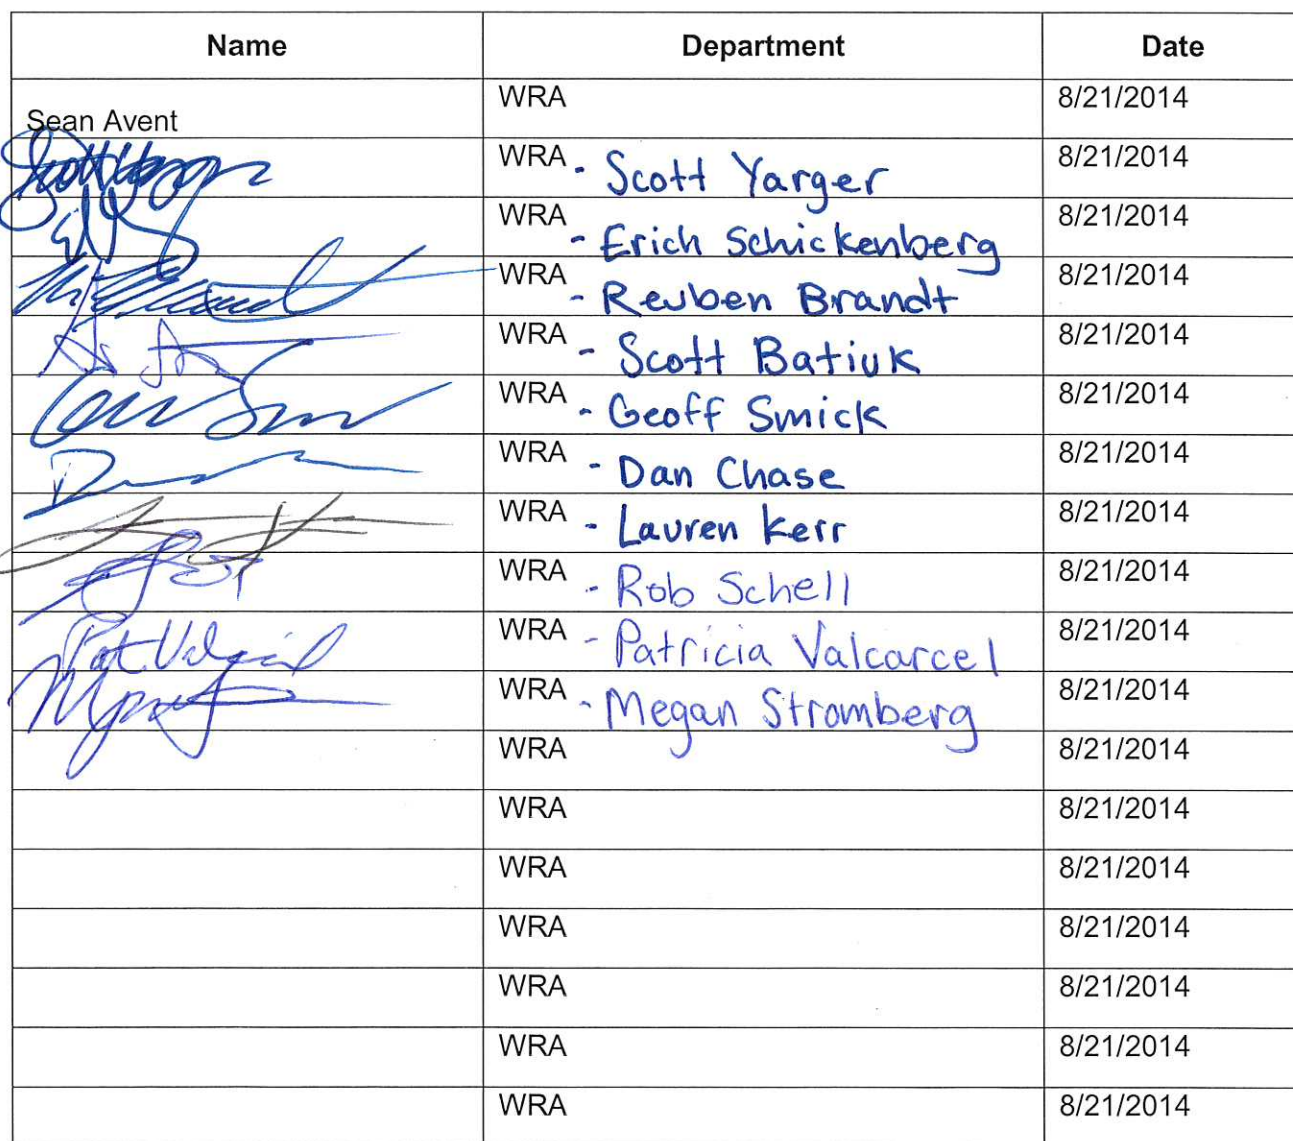 Name Department Date
WRA 8/21/2014
Sean Avent
WRA - Scott Yarger 8/21/2014
WRA - Erich Schickenberg 8/21/2014
WRA - Reuben Brandt 8/21/2014
WRA - Scott Batiuk 8/21/2014
WRA - Geoff Smick 8/21/2014
WRA - Dan Chase 8/21/2014
WRA - Lauren Kerr 8/21/2014
WRA - Rob Schell 8/21/2014
Pat Valcarcel WRA - Patricia Valcarcel 8/21/2014
WRA - Megan Stromberg 8/21/2014
WRA 8/21/2014
WRA 8/21/2014
WRA 8/21/2014
WRA 8/21/2014
WRA 8/21/2014
WRA 8/21/2014
WRA 8/21/2014